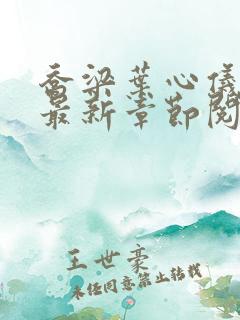 乔梁叶心仪
最新章节阅
王世豪
未经同意禁止转载